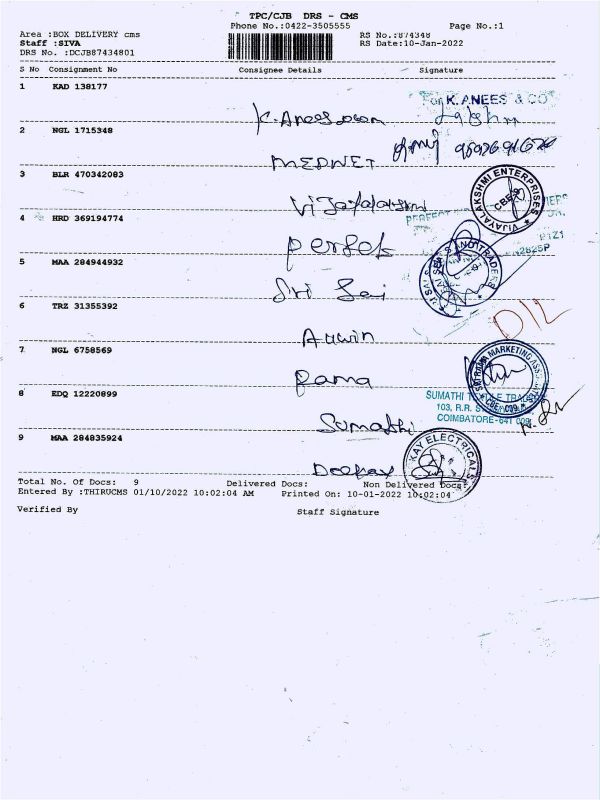 TPC/CJB DRS - CMS
Phone No.:0422-3505555
Page No.:1
Area :BOX DELIVERY cms
RS No.:874348
Staff :SIVA
RS Date:10-Jan-2022
DRS No. :DCJB87434801
S No Consignment No Consignee Details Signature
1 KAD 138177
For K. ANEES & CO
K. Anees
2 NGL 1715348
MEDNET
3 BLR 470342083
VIJAYALAKSHMI ENTERPRISES
CBE
Vijayalakshmi
4 HRD 369194774
PERFECT
Perfect
5 MAA 284944932
Sri Sai
6 TRZ 31355392
D/L
Aswin
7 NGL 6758569
SRI RAMA MARKETING
Rama
8 EDQ 12220899
SUMATHI
103, R.R.
COIMBATORE-641
Sumathi
9 MAA 284835924
KAY ELECTRICALS
Deepax
Total No. Of Docs: 9 Delivered Docs: Non Delivered Docs:
Entered By :THIRUCMS 01/10/2022 10:02:04 AM Printed On: 10-01-2022 10:02:04
Verified By Staff Signature